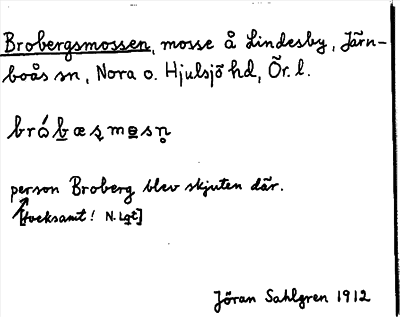 Brobergsmossen, mosse å Lindesby, Järn-
boås sn, Nora o. Hjulsjö hd, Ör. l.
person Broberg blev skjuten där.
[tveksamt! N. Lgt]
Jöran Sahlgren 1912